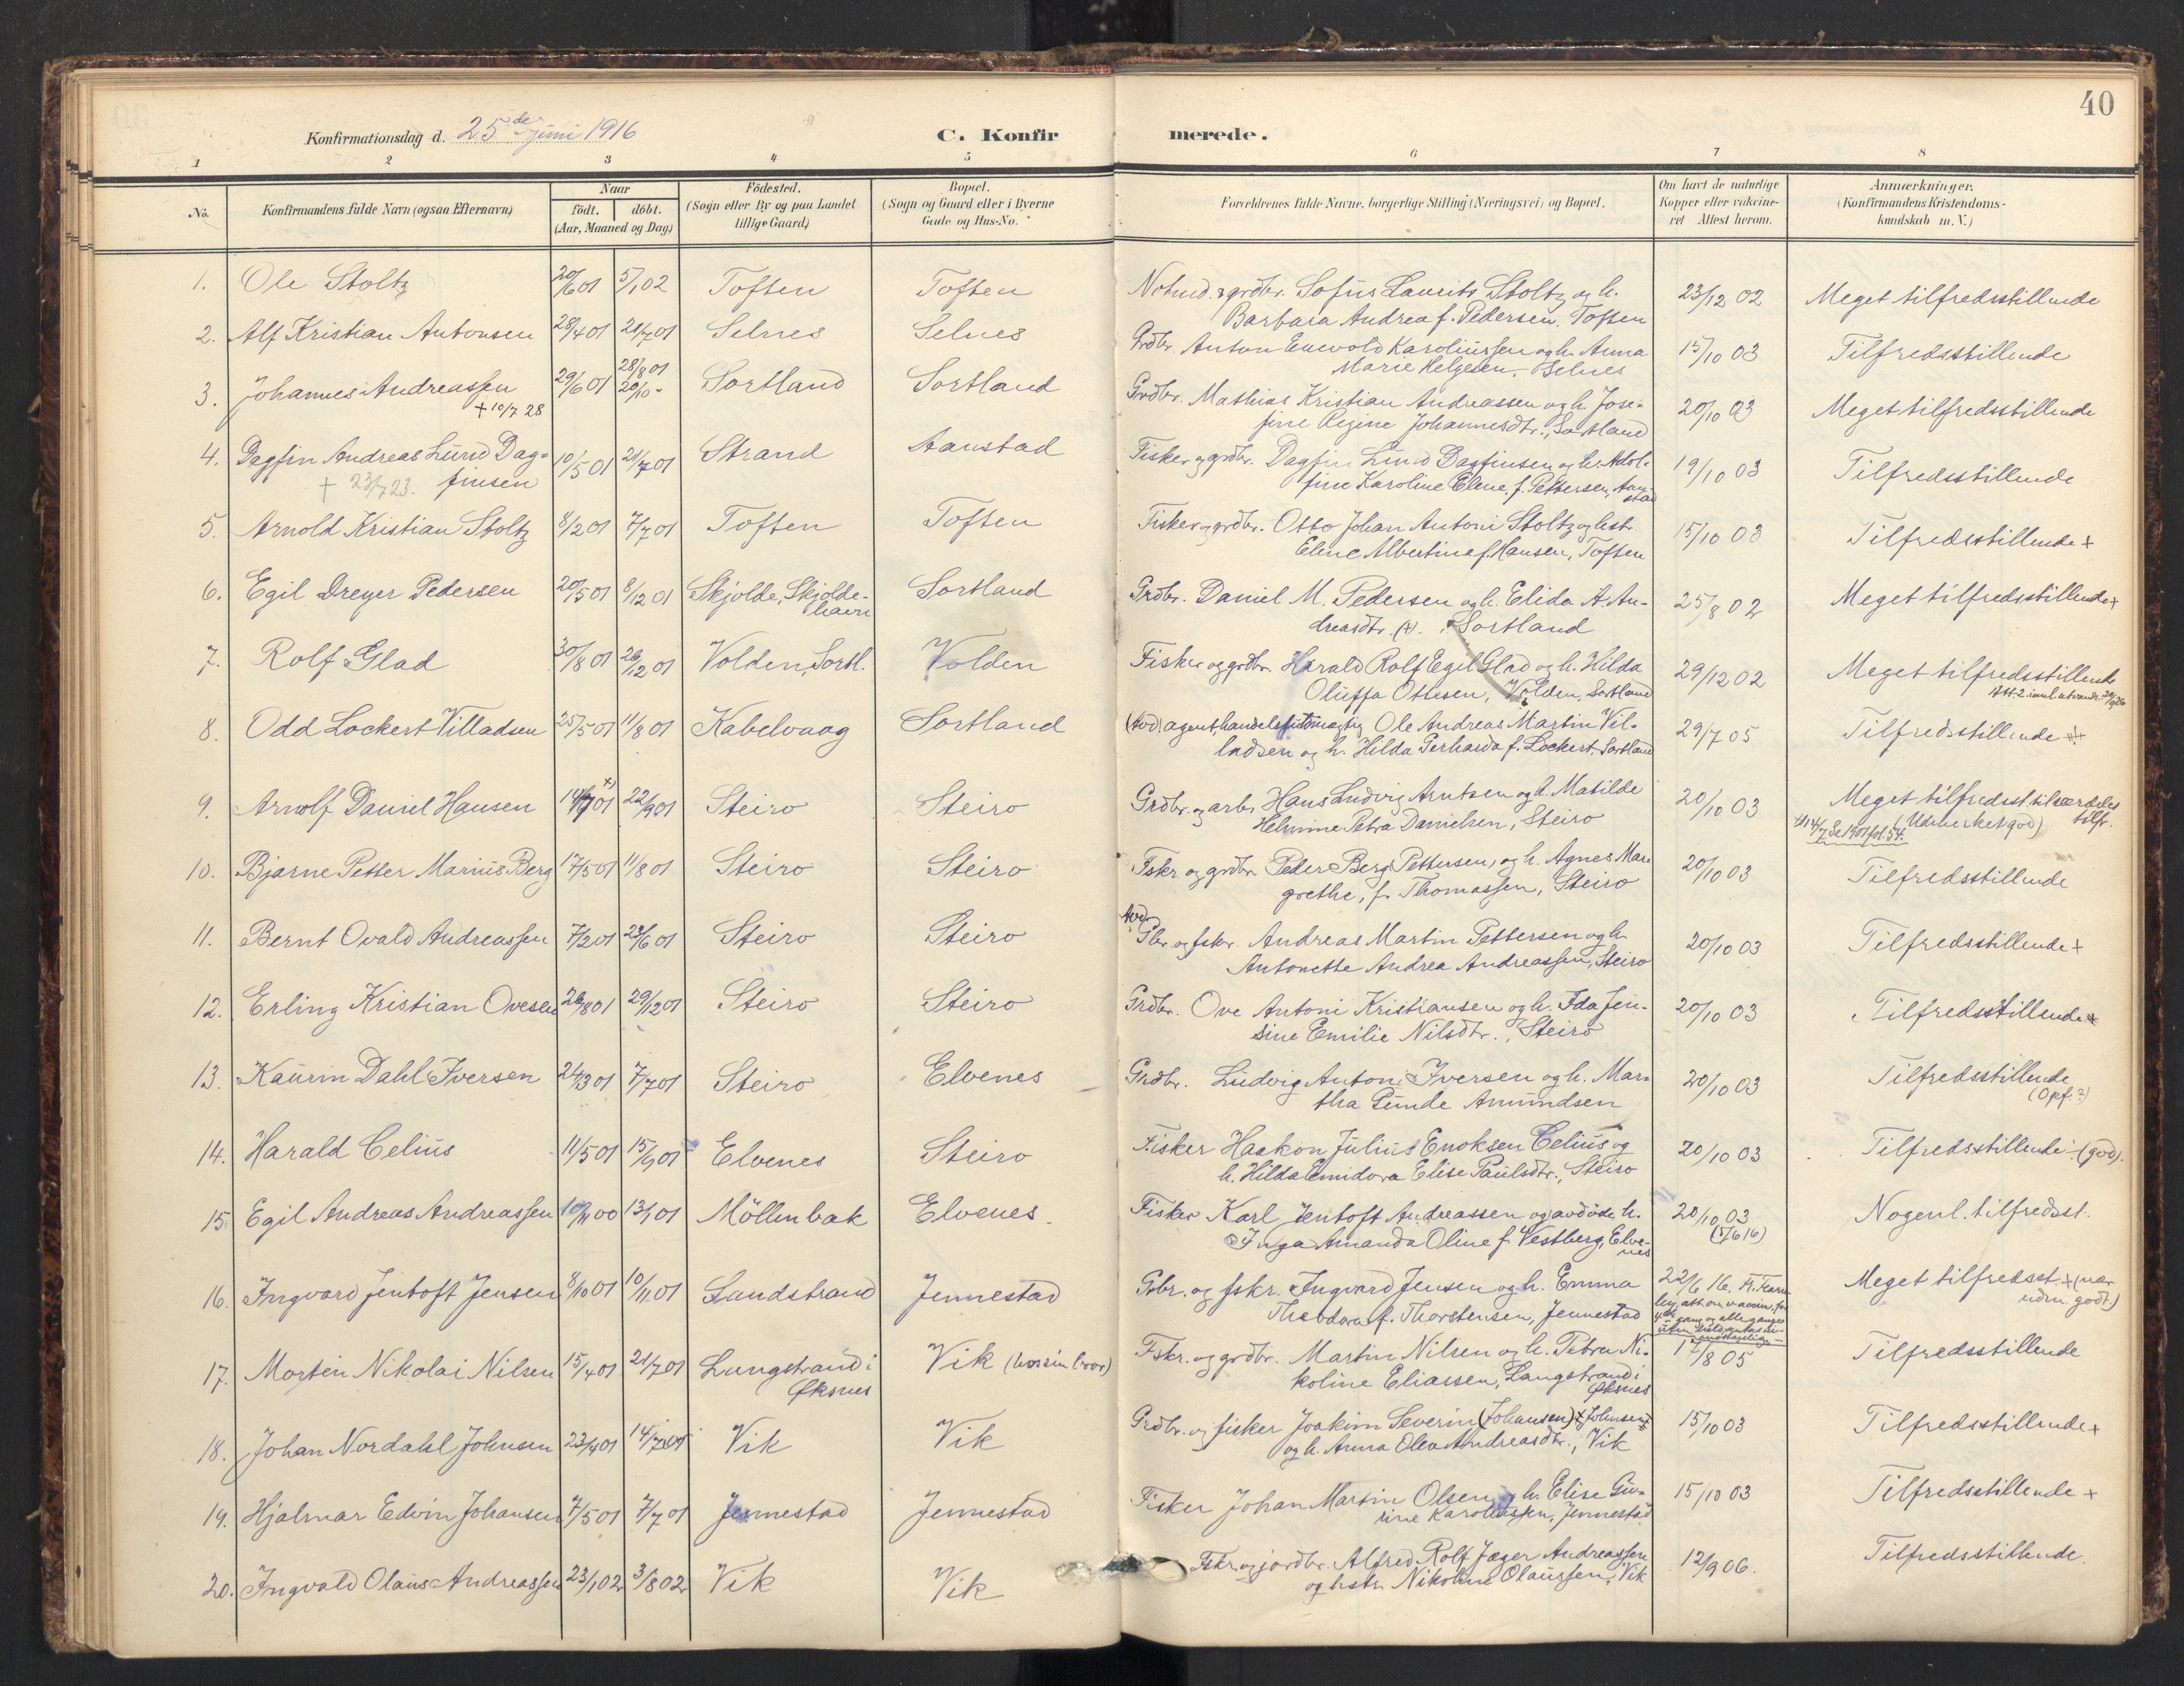 40
Konfirmationsdag d. 25de Juni 1916
C. Konfirmerede.
1 2 3 4 5 6 7 8
No.
Konfirmandens fulde Navn (ogsaa Efternavn)
Naar
födt. döbt.
(Aar, Maaned og Dag)
Födested.
(Sogn eller By og paa Landet
tillige Gaard)
Bopæl.
(Sogn og Gaard eller i Byerne
Gade og Hus-No.
Forældrenes fulde Navne, borgerlige Stilling (Næringsvei) og Bopæl.
Om havt de naturlige
Kopper eller vakcine-
ret Attest herom.
Anmærkninger.
(Konfirmandens Kristendoms-
kundskab m. V.)
1. Ole Stoltz 20/6 01 5/1 02 Toften Toften Notmd. & grdbr. Sofus Laurits Stoltz og h. 23/12 02 Meget tilfredsstillende
Barbara Andrea f. Pedersen, Toften
2. Alf Kristian Antonsen 28/4 01 21/7 01 Selnes Selnes Grdbr. Anton Enevold Karoliussen og h. Anna 15/10 03 Tilfredsstillende
Marie Helgesen, Selnes
3. Johannes Andreassen 29/6 01 28/8 01 Sortland Sortland Grdbr. Mathias Kristian Andreassen og h. Jose- 20/10 03 Meget tilfredsstillende
+ 10/7 28 20/10 " fine Regine Johannesdtr., Sortland
4. Dagfin Andreas Lund Dag- 10/5 01 21/7 01 Strand Aanstad Fisker og grdbr. Dagfin Lund Dagfinsen og h. Adol- 19/10 03 Tilfredsstillende
+ 23/7 23. finsen fine Karoline Elene, f. Pettersen, Aan-
stad
5. Arnold Kristian Stoltz 8/2 01 7/7 01 Toften Toften Fisker og grdbr. Otto Johan Antoni Stoltz og hstr. 15/10 03 Tilfredsstillende +
Eline Albertine f. Hansen, Toften
6. Egil Dreyer Pedersen 20/5 01 8/12 01 Skjolde, Skjolde- Sortland Grdbr. Daniel M. Pedersen og h. Elida A. An- 25/8 02 Meget tilfredsstillende +
havn dreasdtr. (+). Sortland
7. Rolf Glad 30/8 01 26/12 01 Volden, Sortl. Volden Fisker og grdbr. Harald Rolf Egil Glad og h. Hilda 29/12 02 Meget tilfredsstillende
Oluffa Ottesen, Volden, Sortland
8. Odd Lockert Villadsen 25/5 01 11/8 01 Kabelvaag Sortland (Avd.) agent, handelsfuldmægtig Ole Andreas Martin Vil- 29/7 05 Tilfredsstillende
ladsen og h. Hilda Gerharda f. Lockert, Sortland
9. Arnolf Daniel Hansen 22/9 01 Steiro Steiro Grdbr. og arb. Hans Ludvig Arntsen og h. Matilde 20/10 03 Meget tilfredsst. til særdeles
Helmine Petra Danielsen, Steiro (Udmerket god) tilfr.
10. Bjarne Petter Marius Berg 17/5 01 11/8 01 Steiro Steiro Fskr. og grdbr. Peder Berg Pettersen, og h. Agnes Mar- 20/10 03 Tilfredsstillende
grethe, f. Thomassen, Steiro
11. Bernt Ovald Andreassen 7/2 01 23/6 01 Steiro Steiro Avd. Gbr. og fskr. Andreas Martin Pettersen og h. 20/10 03 Tilfredsstillende +
Antonette Andrea Andreassen, Steiro
12. Erling Kristian Ovesen 26/8 01 29/12 01 Steiro Steiro Grdbr. Ove Antoni Kristiansen og h. Ida Jen- 20/10 03 Tilfredsstillende +
sine Emilie Nilsdtr., Steiro
13. Kaurin Dahl Iversen 24/3 01 7/7 01 Steiro Elvenes Grdbr. Ludvig Anton Iversen og h. Mar- 20/10 03 Tilfredsstillende
tha Gunde Amundsen (Opf. ?)
14. Harald Celius 11/5 01 15/9 01 Elvenes Steiro Fisker Haakon Julius Enoksen Celius og 20/10 03 Tilfredsstillende (god).
h. Hilda Emidora Elise Paulsdtr., Steiro
15. Egil Andreas Andreassen 10/11 00 13/1 01 Möllenbak Elvenes. Fisker Karl Jentoft Andreassen og avdöde h. 20/10 03 Nogenl. tilfredsst.
Inga Amanda Oline f. Vestberg, Elve- (5/6 16)
nes
16. Ingvard Jentoft Jensen 8/10 01 10/11 01 Sandstrand Jennestad Gbr. og fskr. Ingvard Jensen og h. Emma 22/6 16. Meget tilfredsst. + (nær
Theodora f. Thorstensen, Jennestad udm. godt)
17. Morten Nikolai Nilsen 15/4 01 21/7 01 Langstrand i Vik (hos sin bror) Fskr. og grdbr. Martin Nilsen og h. Petra Ni- 17/8 05 Tilfredsstillende
Øksnes koline Eliassen, Langstrand i
Øksnes
18. Johan Nordahl Johnsen 23/4 01 14/7 01 Vik Vik Grdbr. og fisker Joakim Severin (Johansen) Johnsen 15/10 03 Tilfredsstillende +
og h. Anna Olea Andreasdtr., Vik
19. Hjalmar Edvin Johansen 7/5 01 7/7 01 Jennestad Jennestad Fisker Johan Martin Olsen og h. Elise Gu- 15/10 03 Tilfredsstillende +
rine Karoliussen, Jennestad
20. Ingvald Olaus Andreassen 23/1 02 3/8 02 Vik Vik Fskr. og jordbr. Alfred Rolf Jæger Andreassen 12/9 06. Tilfredsstillende.
og hstr. Nikoline Olaussen, Vik